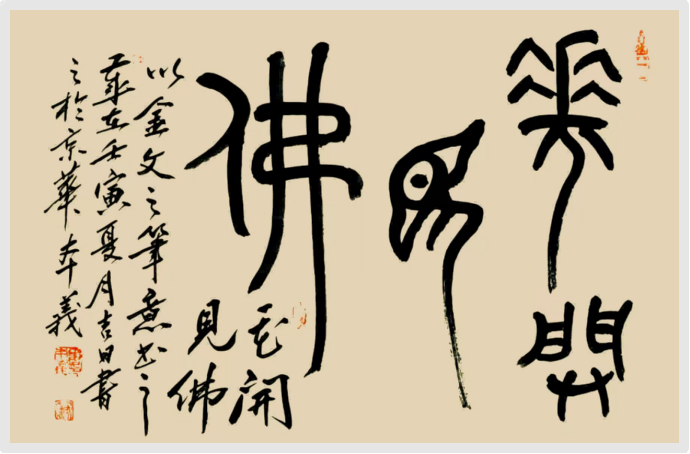 華開
見
佛
花開
見佛
以金文之筆意书之
歲在壬寅夏月吉日書
之於京華本義